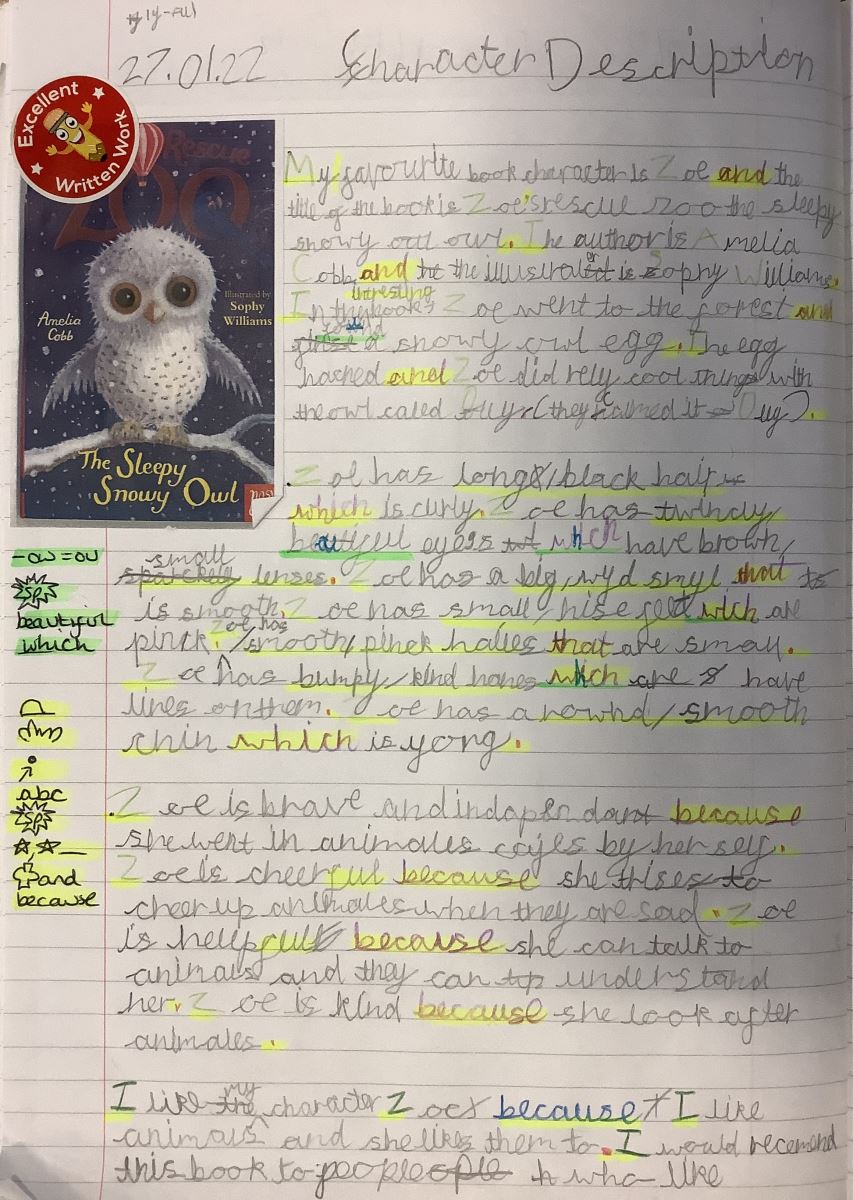 ly-ful
27.01.22
Character Description
Excellent
Written Work
Rescue
ZOO
Illustrated by
Sophy
Williams
Amelia
Cobb
The Sleepy
Snowy Owl
My favourite book character is Zoe and the
title of the book is Zoe's rescue zoo the sleepy
snowy owl. The author is Amelia
Cobb and the illustrator is Sophy Williams.
intresting
In the book Zoe went to the forest and
found
a snowy owl egg. The egg
hached and Zoe did rely cool things with
the owl called (they named it).
Zoe has long, black hair
which is curly. Zoe has twincly,
beautiful eyes which have brown,
small
lenses. Zoe has a big, wyd smyl that
is smooth. Zoe has small, nise feet wich are
zoe has
pinck. smooth, pinck that are small.
Zoe has bumpy, kind which are have
lines on them. Zoe has a rownd, smooth
chin which is yong.
Zoe is brave and indapendant because
she went in animales cajes by her self.
Zoe is cheerful because she trises to
cheer up animales when they are sad. Zoe
is helpful because she can talk to
animals and they can understand
her. Zoe is kind because she look after
animales.
my
I like the character Zoe because I like
animals and she likes them to. I would recemend
this book to people who like
-ow=ou
sp
beautiful
which
abc
sp
and
because